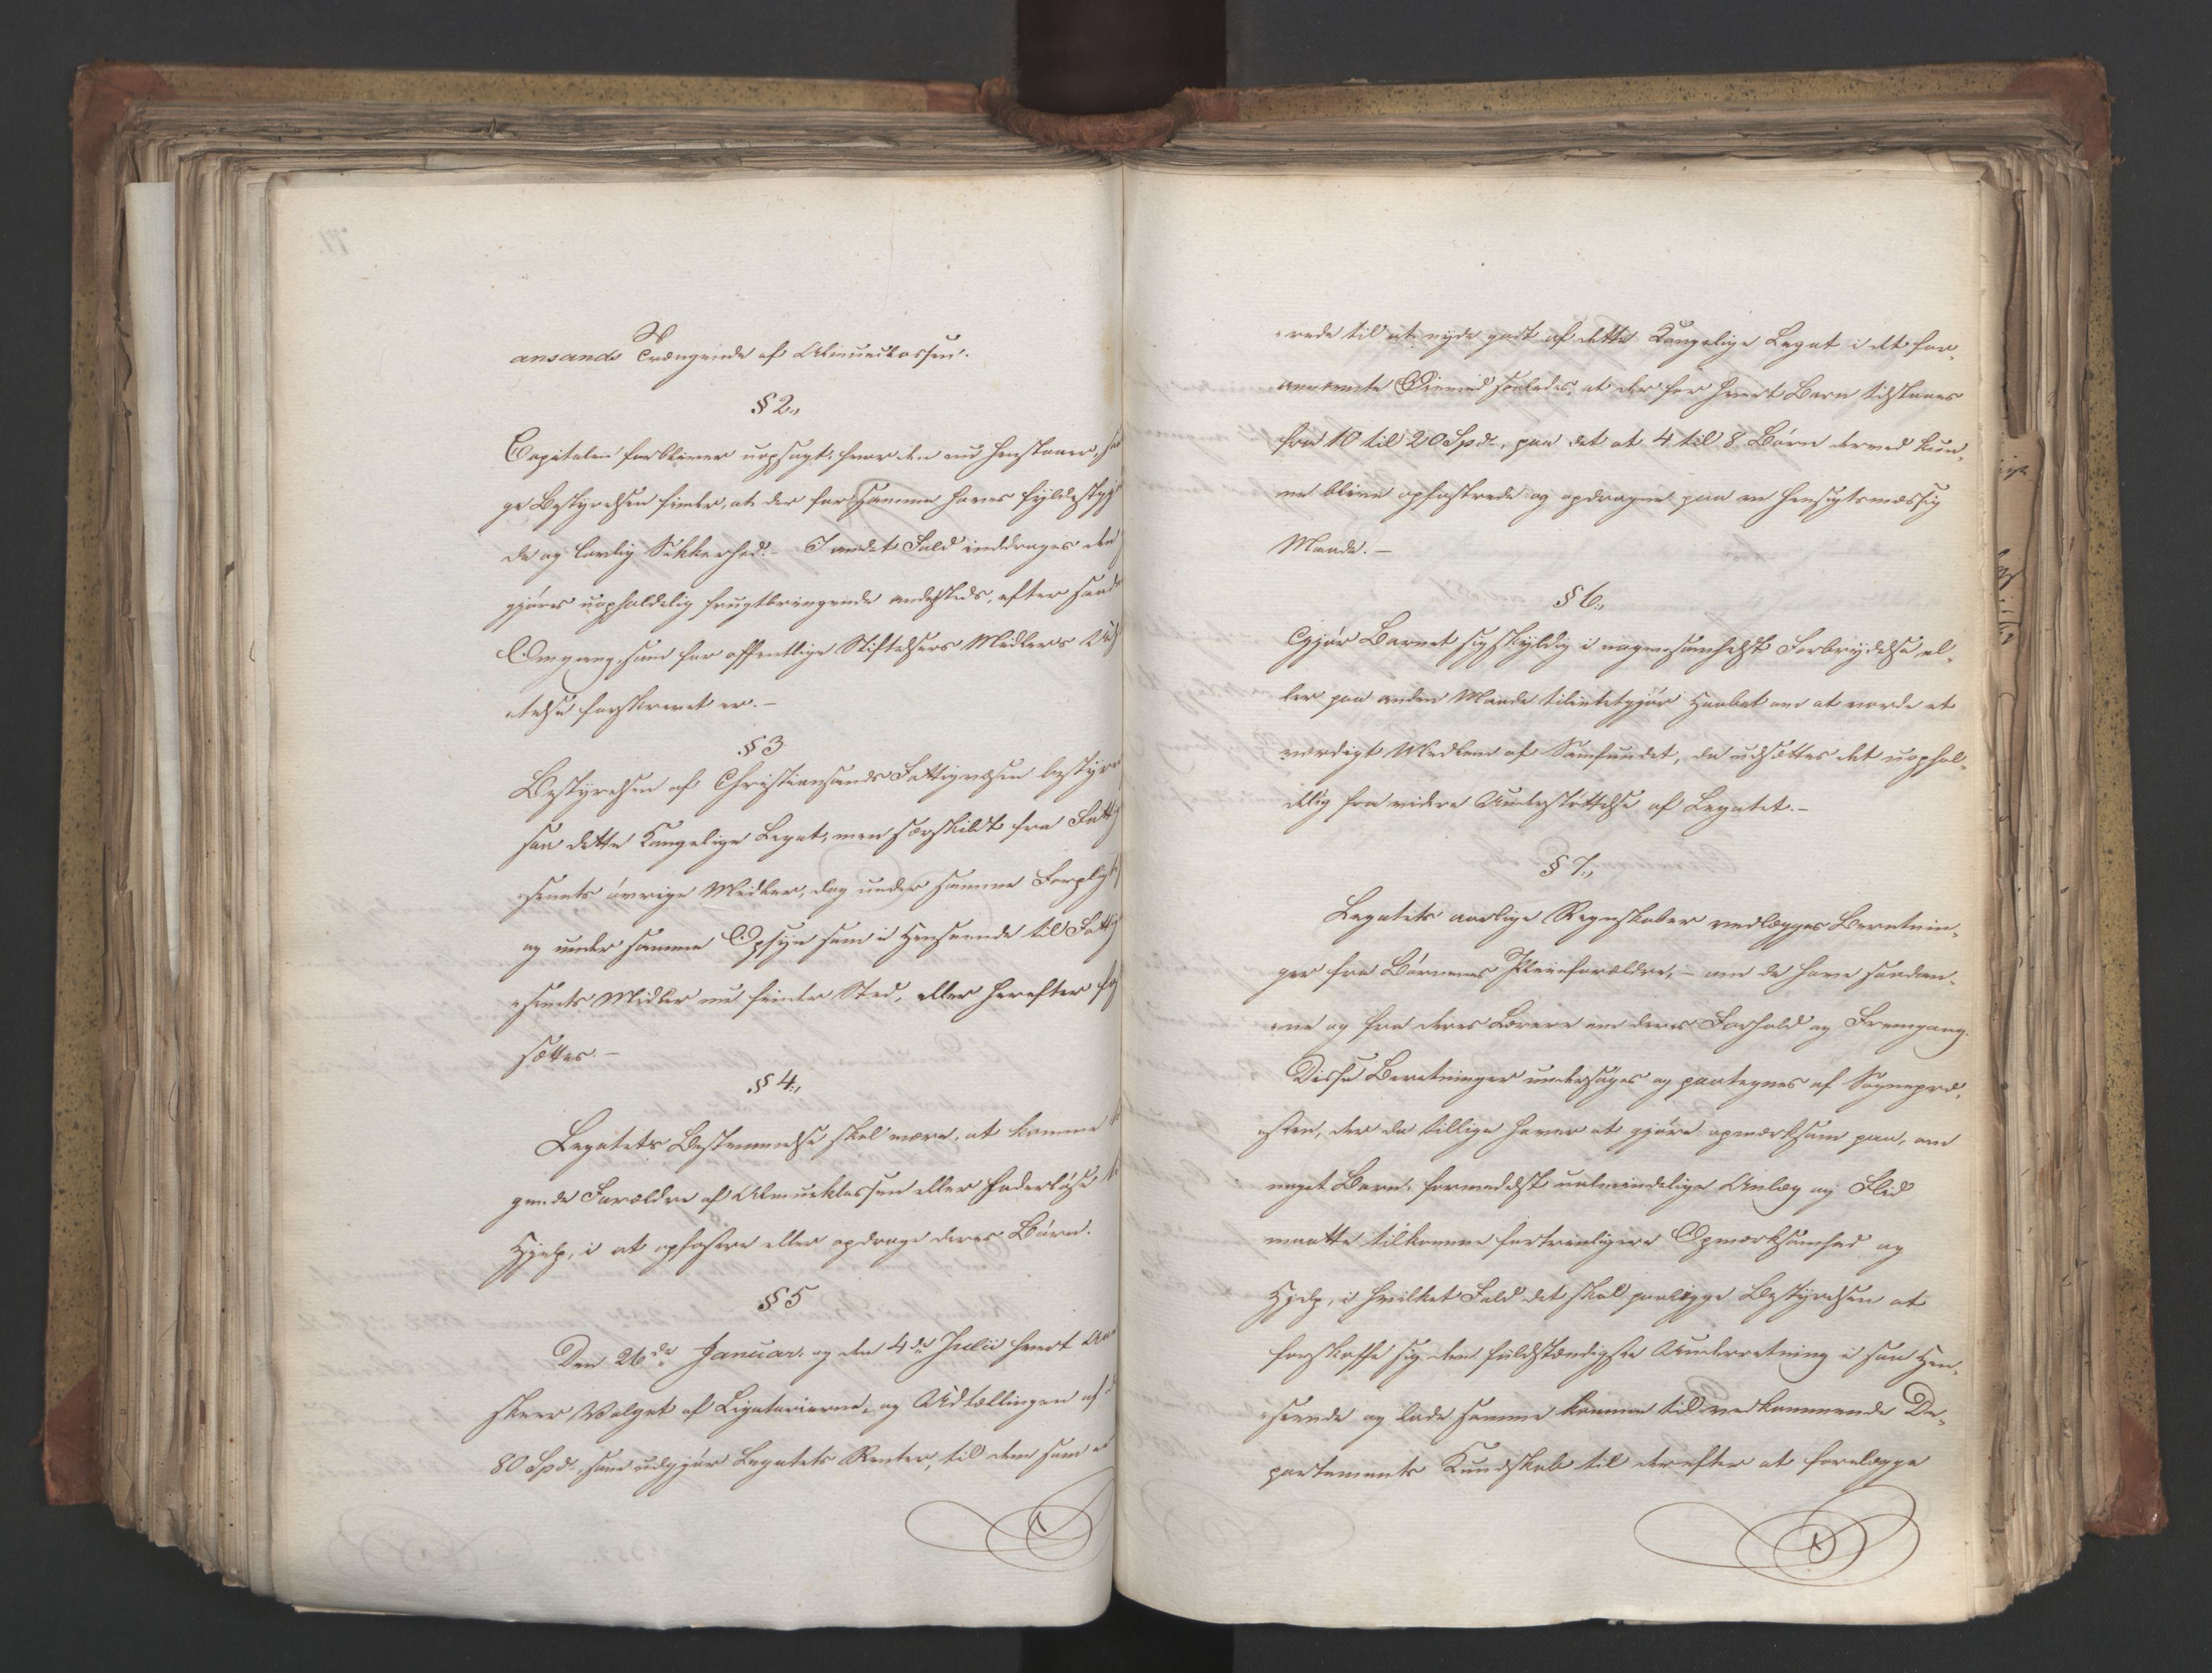 ansands Trængende af Almueclassen.
§ 2.,
Capitalen forbliver uopsagt, hvor den nu henstaaer, saa
ge Bestyrelsen finder, at der for samme haves fyldestgjø
de og lovlig Sikkerhed. – I andet Fald inddrages den
gjøres uopholdelig frugtbringende andetsteds, efter saad
Omgang, som for offentlige Stiftelsers Midlers Ud
telse foreskrevet er. –
§ 3
Bestyrelsen af Christiansands Fattigvæsen bestyre
saa dette Kongelige Legat, men særskildt fra Fatt
senets øvrige Midler, dog under samme Forpligt
og under samme Opsyn som i Henseende til Fatt
senets Midler nu finder Sted, eller herefter fast
sættes. –
§ 4.,
Legatets Bestemmelse skal være, at komme
gende Forældre af Almueklassen eller faderløse
Hjelp, i at opfostre eller opdrage deres Børn.
§ 5
Den 26de Januar. og den 4de Julii hvert Aar
skeer Valget af Legatarierne, og Udtællingen af
80 Spd., som udgjør Legatets Renter, til dem som
rede til at nyde godt af dette Kongelige Legat i det for-
annævnte Øiemed saaledes, at der for hvert Barn tilstaaes
fra 10 til 20 Spd., paa det at 4 til 8 Børn derved kun-
ne blive opfostrede og opdragne paa en hensigtsmæssig
Maade. –
§ 6.,
Gjør Barnet sig skyldig i nogensomhelst Forbrydelse el-
ler paa anden Maade tilintetgjør Haabet om at vorde et
værdigt Medlem af Samfundet, da udsættes det uophol-
delig fra videre Understøttelse af Legatet. –
§ 7.,
Legatets aarlige Regnskaber vedlægges Beretnin-
ger fra Børnenes Pleieforældre, – om de have saadan-
ne og fra deres Lærere om deres Forhold og Fremgang.
Disse Beretninger undersøges og paategnes af Sognepræ-
sten, der da tillige haver at gjøre opmærksom paa, om
noget Barn, formedelst ualmindelige Anlæg og Flid
maatte tilkomme fortrinligere Opmærksomhed og
Hjelp, i hvilket Fald det skal paaligge Bestyrelsen at
forskaffe sig den fuldstændigste Underretning i saa Hen-
seende og lade samme komme til vedkommende De-
partements Kundskab til derefter at forelægge